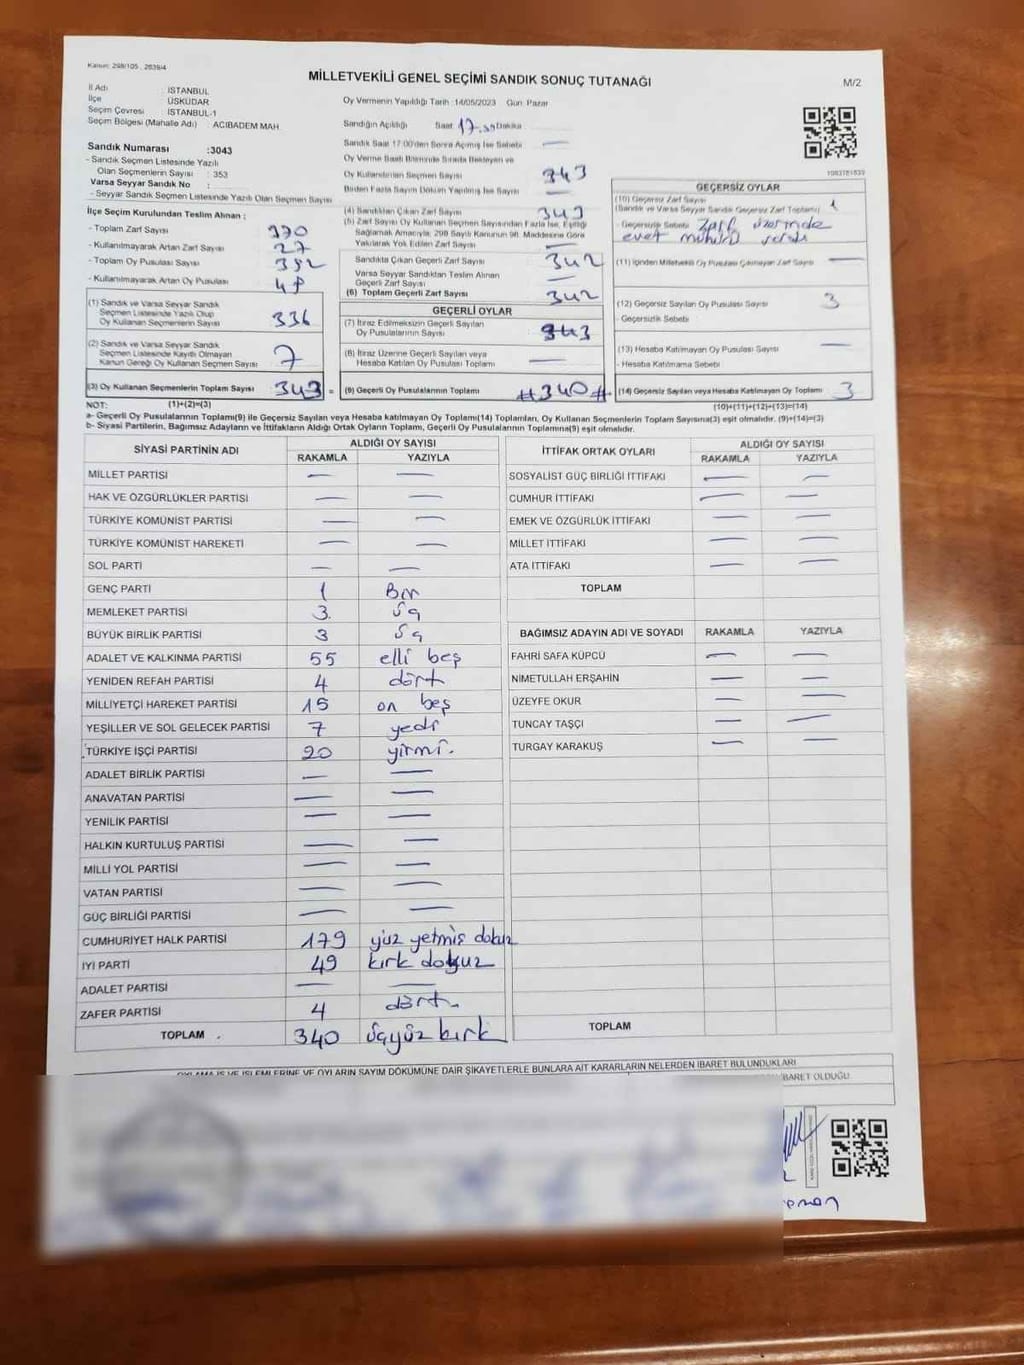 Kanun: 298/105, 2839/4
MİLLETVEKİLİ GENEL SEÇİMİ SANDIK SONUÇ TUTANAĞI
M/2
İl Adı : İSTANBUL
İlçe : ÜSKÜDAR
Seçim Çevresi : İSTANBUL-1
Seçim Bölgesi (Mahalle Adı) : ACIBADEM MAH.
Oy Vermenin Yapıldığı Tarih :14/05/2023 Gün Pazar
Sandığın Açıldığı Saat 17.
Dakika
Sandık Saat 17:00'den Sonra Açılmış İse Sebebi —
Oy Verme Saati Bitiminde Sırada Bekleyen ve
Oy Kullandırılan Seçmen Sayısı 343
Birden Fazla Sayım Döküm Yapılmış İse Sayısı —
Sandık Numarası :3043
- Sandık Seçmen Listesinde Yazılı
Olan Seçmenlerin Sayısı : 353
Varsa Seyyar Sandık No :
- Seyyar Sandık Seçmen Listesinde Yazılı Olan Seçmen Sayısı
İlçe Seçim Kurulundan Teslim Alınan ;
- Toplam Zarf Sayısı 370
- Kullanılmayarak Artan Zarf Sayısı 27
- Toplam Oy Pusulası Sayısı 392
- Kullanılmayarak Artan Oy Pusulası
(1) Sandık ve Varsa Seyyar Sandık
Seçmen Listesinde Yazılı Olup
Oy Kullanan Seçmenlerin Sayısı 336
(2) Sandık ve Varsa Seyyar Sandık
Seçmen Listesinde Kayıtlı Olmayan
Kanun Gereği Oy Kullanan Seçmen Sayısı 7
(3) Oy Kullanan Seçmenlerin Toplam Sayısı 343 =
(4) Sandıktan Çıkan Zarf Sayısı 343
(5) Zarf Sayısı Oy Kullanan Seçmen Sayısından Fazla İse, Eşitliği
Sağlamak Amacıyla; 298 Sayılı Kanunun 98. Maddesine Göre
Yakılarak Yok Edilen Zarf Sayısı
Sandıkta Çıkan Geçerli Zarf Sayısı 342
Varsa Seyyar Sandıktan Teslim Alınan
Geçerli Zarf Sayısı —
(6) Toplam Geçerli Zarf Sayısı 342
GEÇERLİ OYLAR
(7) İtiraz Edilmeksizin Geçerli Sayılan
Oy Pusulalarının Sayısı 343
(8) İtiraz Üzerine Geçerli Sayılan veya
Hesaba Katılan Oy Pusulası Toplamı —
(9) Geçerli Oy Pusulalarının Toplamı #340#
1093781833
GEÇERSİZ OYLAR
(10) Geçersiz Zarf Sayısı
(Sandık ve Varsa Seyyar Sandık Geçersiz Zarf Toplamı) 1
- Geçersizlik Sebebi Zarf üzerinde
evet mühürü
(11) İçinden Milletvekili Oy Pusulası Çıkmayan Zarf Sayısı —
(12) Geçersiz Sayılan Oy Pusulası Sayısı 3
- Geçersizlik Sebebi
(13) Hesaba Katılmayan Oy Pusulası Sayısı —
- Hesaba Katılmama Sebebi
(14) Geçersiz Sayılan veya Hesaba Katılmayan Oy Toplamı 3
NOT: (1)+(2)=(3)
(10)+(11)+(12)+(13)=(14)
a- Geçerli Oy Pusulalarının Toplamı(9) ile Geçersiz Sayılan veya Hesaba katılmayan Oy Toplamı(14) Toplamları, Oy Kullanan Seçmenlerin Toplam Sayısına(3) eşit olmalıdır. (9)+(14)=(3)
b- Siyasi Partilerin, Bağımsız Adayların ve İttifakların Aldığı Ortak Oyların Toplamı, Geçerli Oy Pusulalarının Toplamına(9) eşit olmalıdır.
SİYASİ PARTİNİN ADI
ALDIĞI OY SAYISI
RAKAMLA YAZIYLA
MİLLET PARTİSİ — —
HAK VE ÖZGÜRLÜKLER PARTİSİ — —
TÜRKİYE KOMÜNİST PARTİSİ — —
TÜRKİYE KOMÜNİST HAREKETİ — —
SOL PARTİ — —
GENÇ PARTİ 1 Bir
MEMLEKET PARTİSİ 3 üç
BÜYÜK BİRLİK PARTİSİ 3 üç
ADALET VE KALKINMA PARTİSİ 55 elli beş
YENİDEN REFAH PARTİSİ 4 dört
MİLLİYETÇİ HAREKET PARTİSİ 15 on beş
YEŞİLLER VE SOL GELECEK PARTİSİ 7 yedi
TÜRKİYE İŞÇİ PARTİSİ 20 yirmi.
ADALET BİRLİK PARTİSİ — —
ANAVATAN PARTİSİ — —
YENİLİK PARTİSİ — —
HALKIN KURTULUŞ PARTİSİ — —
MİLLİ YOL PARTİSİ — —
VATAN PARTİSİ — —
GÜÇ BİRLİĞİ PARTİSİ — —
CUMHURİYET HALK PARTİSİ 179 yüz yetmiş dokuz
İYİ PARTİ 49 kırk dokuz
ADALET PARTİSİ — —
ZAFER PARTİSİ 4 dört.
TOPLAM 340 üçyüz kırk
İTTİFAK ORTAK OYLARI
ALDIĞI OY SAYISI
RAKAMLA YAZIYLA
SOSYALİST GÜÇ BİRLİĞİ İTTİFAKI — —
CUMHUR İTTİFAKI — —
EMEK VE ÖZGÜRLÜK İTTİFAKI — —
MİLLET İTTİFAKI — —
ATA İTTİFAKI — —
TOPLAM
BAĞIMSIZ ADAYIN ADI VE SOYADI RAKAMLA YAZIYLA
FAHRİ SAFA KÜPCÜ — —
NİMETULLAH ERŞAHİN — —
ÜZEYFE OKUR — —
TUNCAY TAŞÇI — —
TURGAY KARAKUŞ — —
TOPLAM
OYLAMA İŞ VE İŞLEMLERİNE VE OYLARIN SAYIM DÖKÜMÜNE DAİR ŞİKAYETLERLE BUNLARA AİT KARARLARIN NELERDEN İBARET BULUNDUKLARI
İBARET OLDUĞU